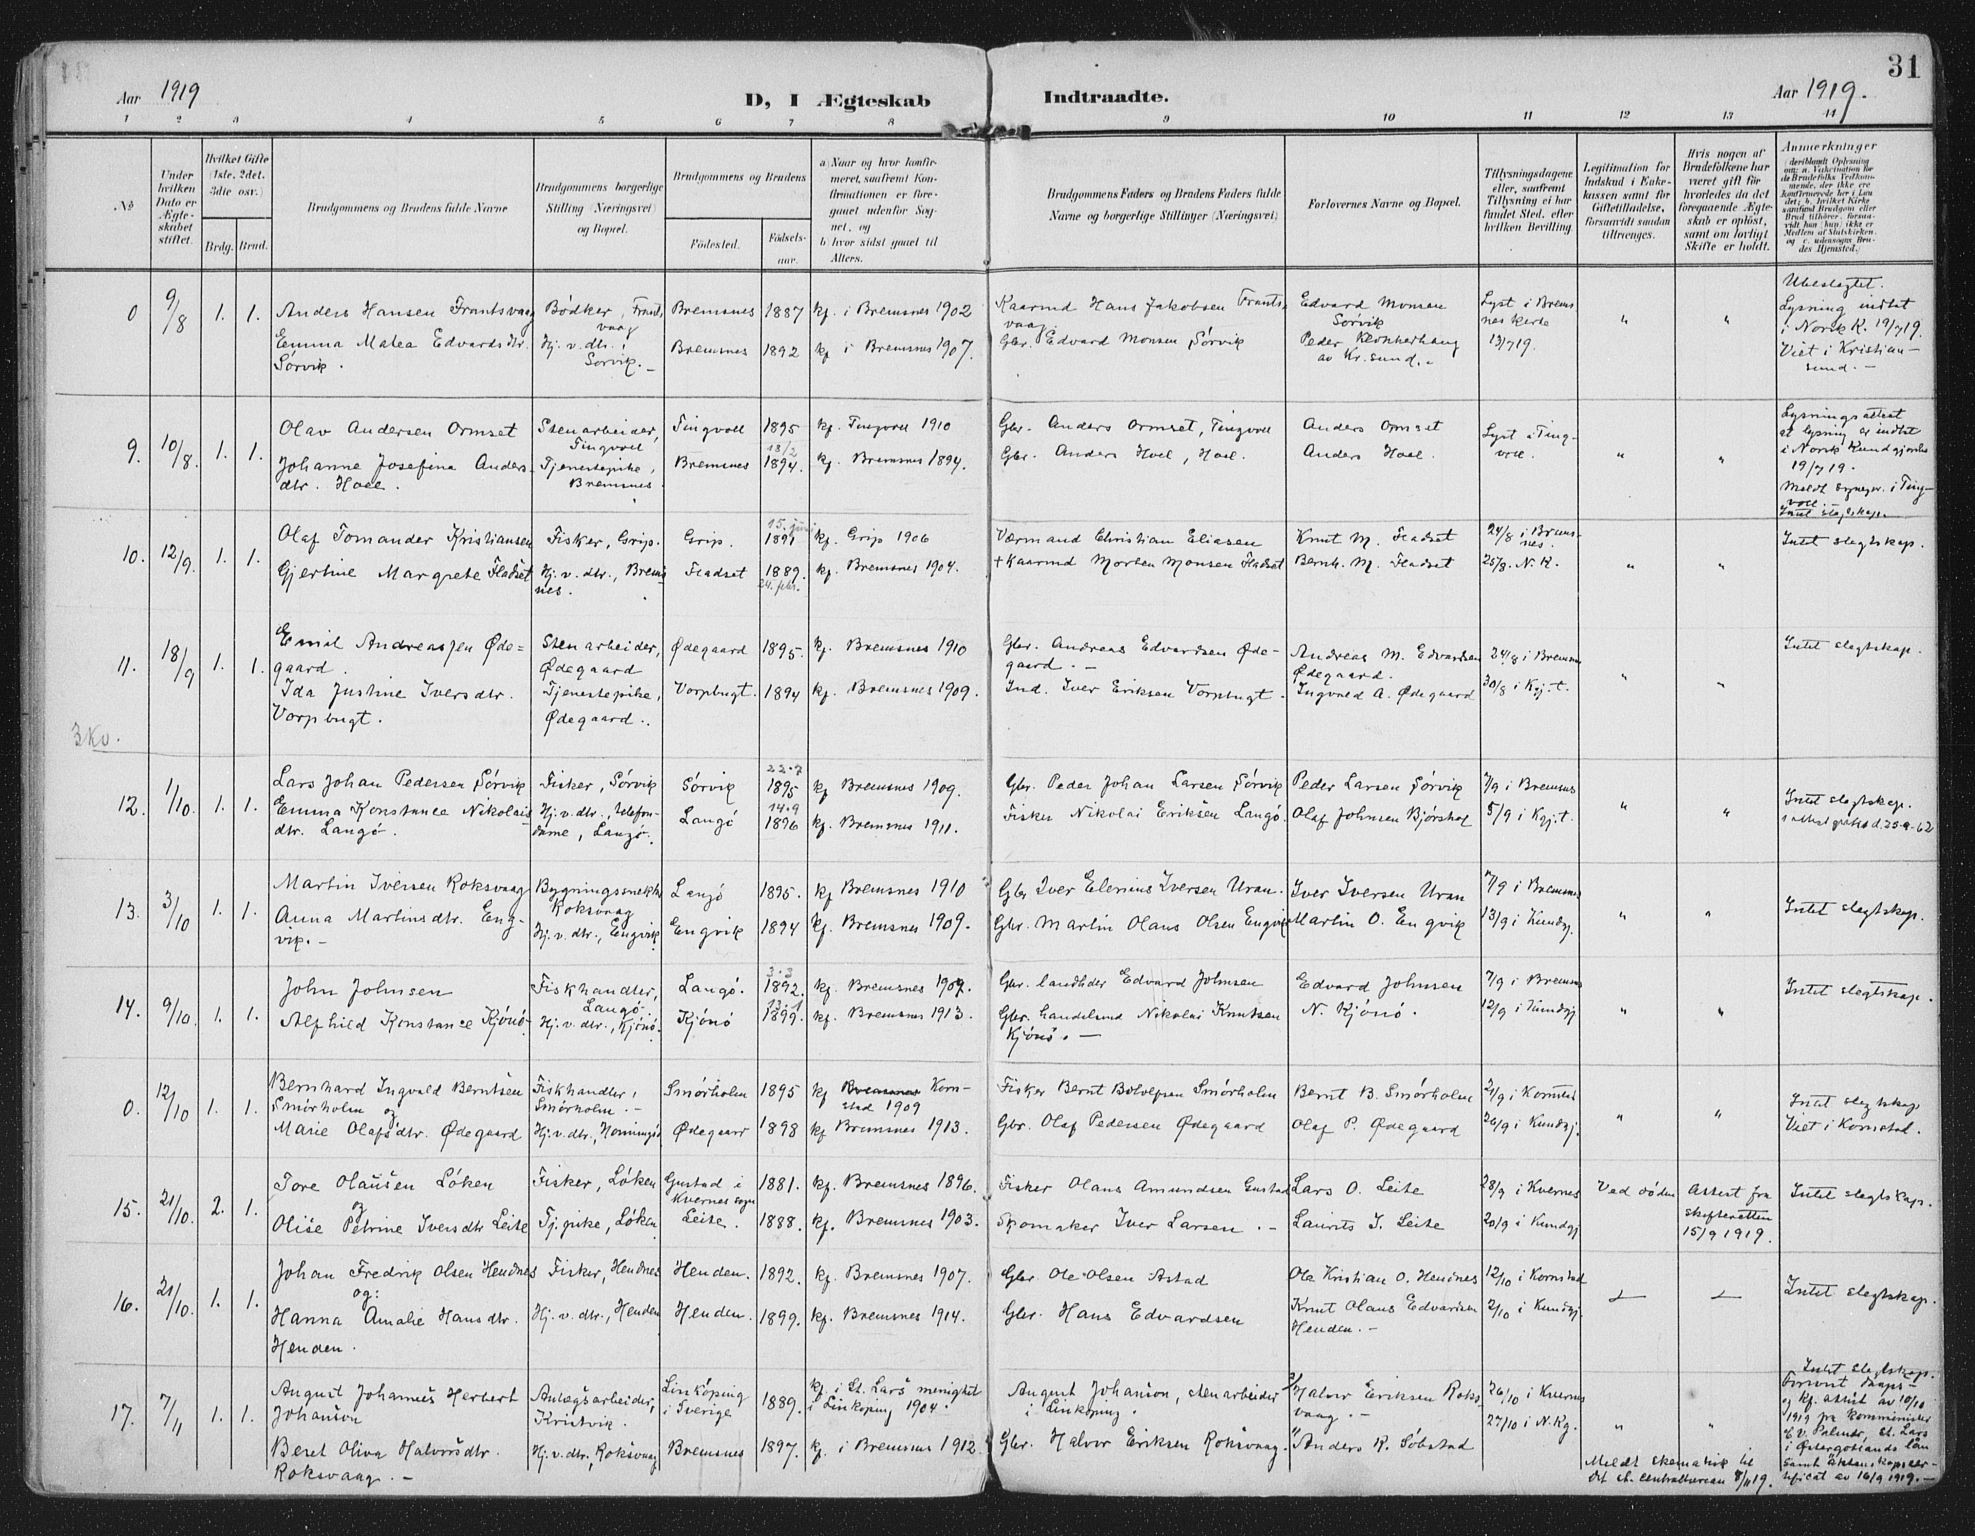 31
Aar 1919
D, I Ægteskab Indtraadte.
Aar 1919.
1 2 3 4 5 6 7 8 9 10 11 12 13 14
No
Under hvilken Dato er Ægteskabet stiftet.
Hvilket Gifte (1ste, 2det, 3die osv.)
Brdg. Brud.
Brudgommens og Brudens fulde Navne
Brudgommens borgerlige Stilling (Næringsvei) og Bopæl.
Brudgommens og Brudens
Födested.
Födsels-aar.
a) Naar og hvor konfirmeret, saafremt Konfirmationen er foregaaet udenfor Sognet, og
b) hvor sidst gaaet til Alters.
Brudgommens Faders og Brudens Faders fulde Navne og borgerlige Stillinger (Næringsvei)
Forlovernes Navne og Bopæl.
Tillysningsdagene eller, saafremt Tillysning ei har fundet Sted, efter hvilken Bevilling.
Legitimation for Indskud i Enkekassen samt for Giftetilladelse, forsaavidt saadan tiltrænges.
Hvis nogen af Brudefolkene har været gift för hvorledes da det foregaaende Ægteskab er oplöst, samt om lovligt Skifte er holdt.
Anmærkninger
0 9/8 1. 1. Anders Hansen Frantsvaag Bødker, Frantsvaag Bremsnes 1887 kf. i Bremsnes 1902 Kaarmd Hans Jakobsen Frantsvaag Edvard Monsen Sørvik Lyst i Bremsnes kirke 13/7 19. " " Ubeslegtet. Lysning indtat i Norsk K. 19/7 19. Viet i Kristiansund. -
Emma Matea Edvardsdtr. Sørvik. Hj. v. dtr. Sørvik. - Bremsnes 1892 kf i Bremsnes 1907. Gbr. Edvard Monsen Sørvik Peder av Kr.sund. -
9. 10/8. 1. 1. Olav Andersen Ormset Stenarbeider, Tingvoll Tingvoll 1895 kf. Tingvoll 1910 Gbr. Anders Ormset, Tingvoll Anders Ormset Lyst i Tingvoll. " " Lysningsattest at lysning er indtat i Norsk Kundgjørelse 19/7 19.
Johanne Josefina Andersdtr. Hoel. Tjenestepike, Bremsnes. Bremsnes 18/2 1894. kf. Bremsnes 1894. Gbr. Anders Hoel, Hoel. Anders Hoel. Meldt i Tingvoll. - Intet slegtskap.
10. 12/9. 1. 1. Olaf Tomander Kristiansen Fisker, Grip. Grip. 15. juni 1891 kf. Grip 1906 Værmand Christian Eliasen Knut M. Fladset 24/8 i Bremsnes. Intet slegtskap.
Gjertine Margrete Fladset Hj. v. dtr., Bremsnes. Fladset 1889. 24. febr. kf. Bremsnes 1904. + Kaarmd Morten Monsen Fladset Bernh. M. Fladset 25/8. N. K. " "
11. 18/9 1. 1. Emil Andreassen Ødegaard. Stenarbeider, Ødegaard Ødegaard 1895. kf. Bremsnes 1910 Gbr. Andreas Edvardsen Ødegaard. - Andreas M. Edvardsen Ødegaard. 24/8 i Bremsnes Intet slegtskap.
Ida Justine Iversdtr. Vorpbugt. Tjenestepike, Ødegaard.. Vorpbugt. 1894 kf. Bremsnes 1909. Ind. Iver Eriksen Vorpbugt. Ingvald A. Ødegaard 30/8 i Kgj.t. " "
3 Ko.
12. 1/10. 1. 1. Lars Johan Pedersen Sørvik Fisker, Sørvik Sørvik 22-7 1895 kf Bremsnes 1909. Gbr. Peder Johan Larsen Sørvik Peder Larsen Sørvik 7/9 i Bremsnes Intet slegtskap.
Emma Konstance Nikolaisdtr. Langø. Hj. v. dtr., telefondame, Langø. Langø 14-9 1896 kf. Bremsnes 1911. Fisker Nikolai Eriksen Langø. Olaf Johnsen Bjørshol 5/9 i Kgj.t. " " 25-9-62
13. 3/10 1. 1. Martin Iversen Roksvaag Bygningssnekker Roksvaag Langø 1895. kf Bremsnes 1910 Gbr Iver Elenius Iversen Uran. Iver Iversen Uran 7/9 i Bremsnes
Anna Martinsdtr. Engvik. - Hj. v. dtr., Engvik Engvik 1894 kf. Bremsnes 1909. Gbr. Martin Olaus Olsen Engvik Martin O. Engvik 13/9 i Kundgj. " " Intet slegtskap.
14. 9/10. 1. 1. John Johnsen Fiskhandler, Langø Langø. 3-3 1892. kf. Bremsnes 1907. Gbr. landhder Edvard Johnsen Edvard Johnsen 7/9 i Bremsnes Intet slegtskap.
Alfhild Konstance Kjønø. Hj. v. dtr., Kjønø. Kjønø 13-1 1899. kf. Bremsnes 1913. Gbr. handelsmd Nikolai Knutsen Kjønø. - N. Kjønø. 12/9 i Kundgj " "
0. 12/10 1. 1. Bernhard Ingvald Berntsen Smørholm og Fiskhandler, Smørholm. - Smørholm 1895 kf Bremsnes Kornstad 1909 Fisker Bernt Smørholm Bernt B. Smørholm 21/9 i Kornstad Intet slegtskap
Marie Olafsdtr. Ødegaard Hj. v. dtr., Honningsø Ødegaard 1898 kf Bremsnes 1913. Gbr. Olaf Pedersen Ødegaard Olaf P. Ødegaard 26/9 i Kundgj. " " Viet i Kornstad.
15. 21/10. 2. 1. Tore Olausen Løken og Fisker, Løken Gustad i Kvernes sogn 1881. kf. Bremsnes 1896. Fisker Olaus Amundsen Gustad Lars O. Leite 28/9 i Kvernes Ved døden Attest fra skifteretten 15/9 1919. Intet slegtskap.
Olise Petrine Iversdtr Leite Tj. pike, Løken Leite. 1888. kf. Bremsnes 1903. Skomaker Iver Larsen. - Laurits I. Leite 20/9 i Kundgj
16. 21/10. 1. 1. Johan Fredrik Olsen Hendnes og: Fisker, Hendnes Henden. 1892. kf. Bremsnes 1907. Gbr. Ole Olsen Astad Ole Kristian O. Hendnes 12/10 i Kornstad Intet slegtskap.
Hanna Amalie Hansdtr. Henden. Hj. v. dtr., Henden Henden. 1899. kf. Bremsnes 1914. Gbr. Hans Edvardsen Knut Olaus Edvardsen Henden. - 2/10 i Kundgj.
17. 7/11 1. 1. August Johannes Herbert Johanson Anlægsarbeider, Kristvik. Linköping i Sverige 1889. kf. i St. Lars menighet i Linköping 1904. August Johanson, stenarbeider i Linköping. Halvor Eriksen Roksvaag. - 26/10 i Kvernes 27/10 i N. Kg. " " Intet slegtskap. Forevist daaps- og kf. attest av 10/10 1919 fra kominister E.V. Palmér, St. Lars i Östergötlands län samt certificat av 16/9 1919. -
Beret Oliva Halvorsdtr. Roksvaag. - Hj. v. dtr., Roksvaag Bremsnes 1897. kf. i Bremsnes 1912. Gbr. Halvor Eriksen Roksvaag. Anders K. Søbstad
Meldt skematisk til det st. centralbureau 8/11 19.